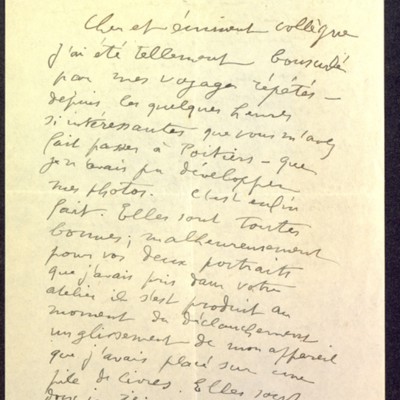 Cher et éminent collègue
j'ai été tellement bousculé
par mes voyages répétés –
depuis les quelques heures
si intéressantes que vous m'avez
fait passer à Poitiers – que
je n'avais pu développer
mes photos. C'est enfin
fait. Elles sont toutes
bonnes; malheureusement
pour vos deux portraits
que j'avais pris dans votre
atelier il s'est produit au
moment du déclanchement
un glissement de mon appareil
que j'avais placé sur une
pile de livres. Elles sont